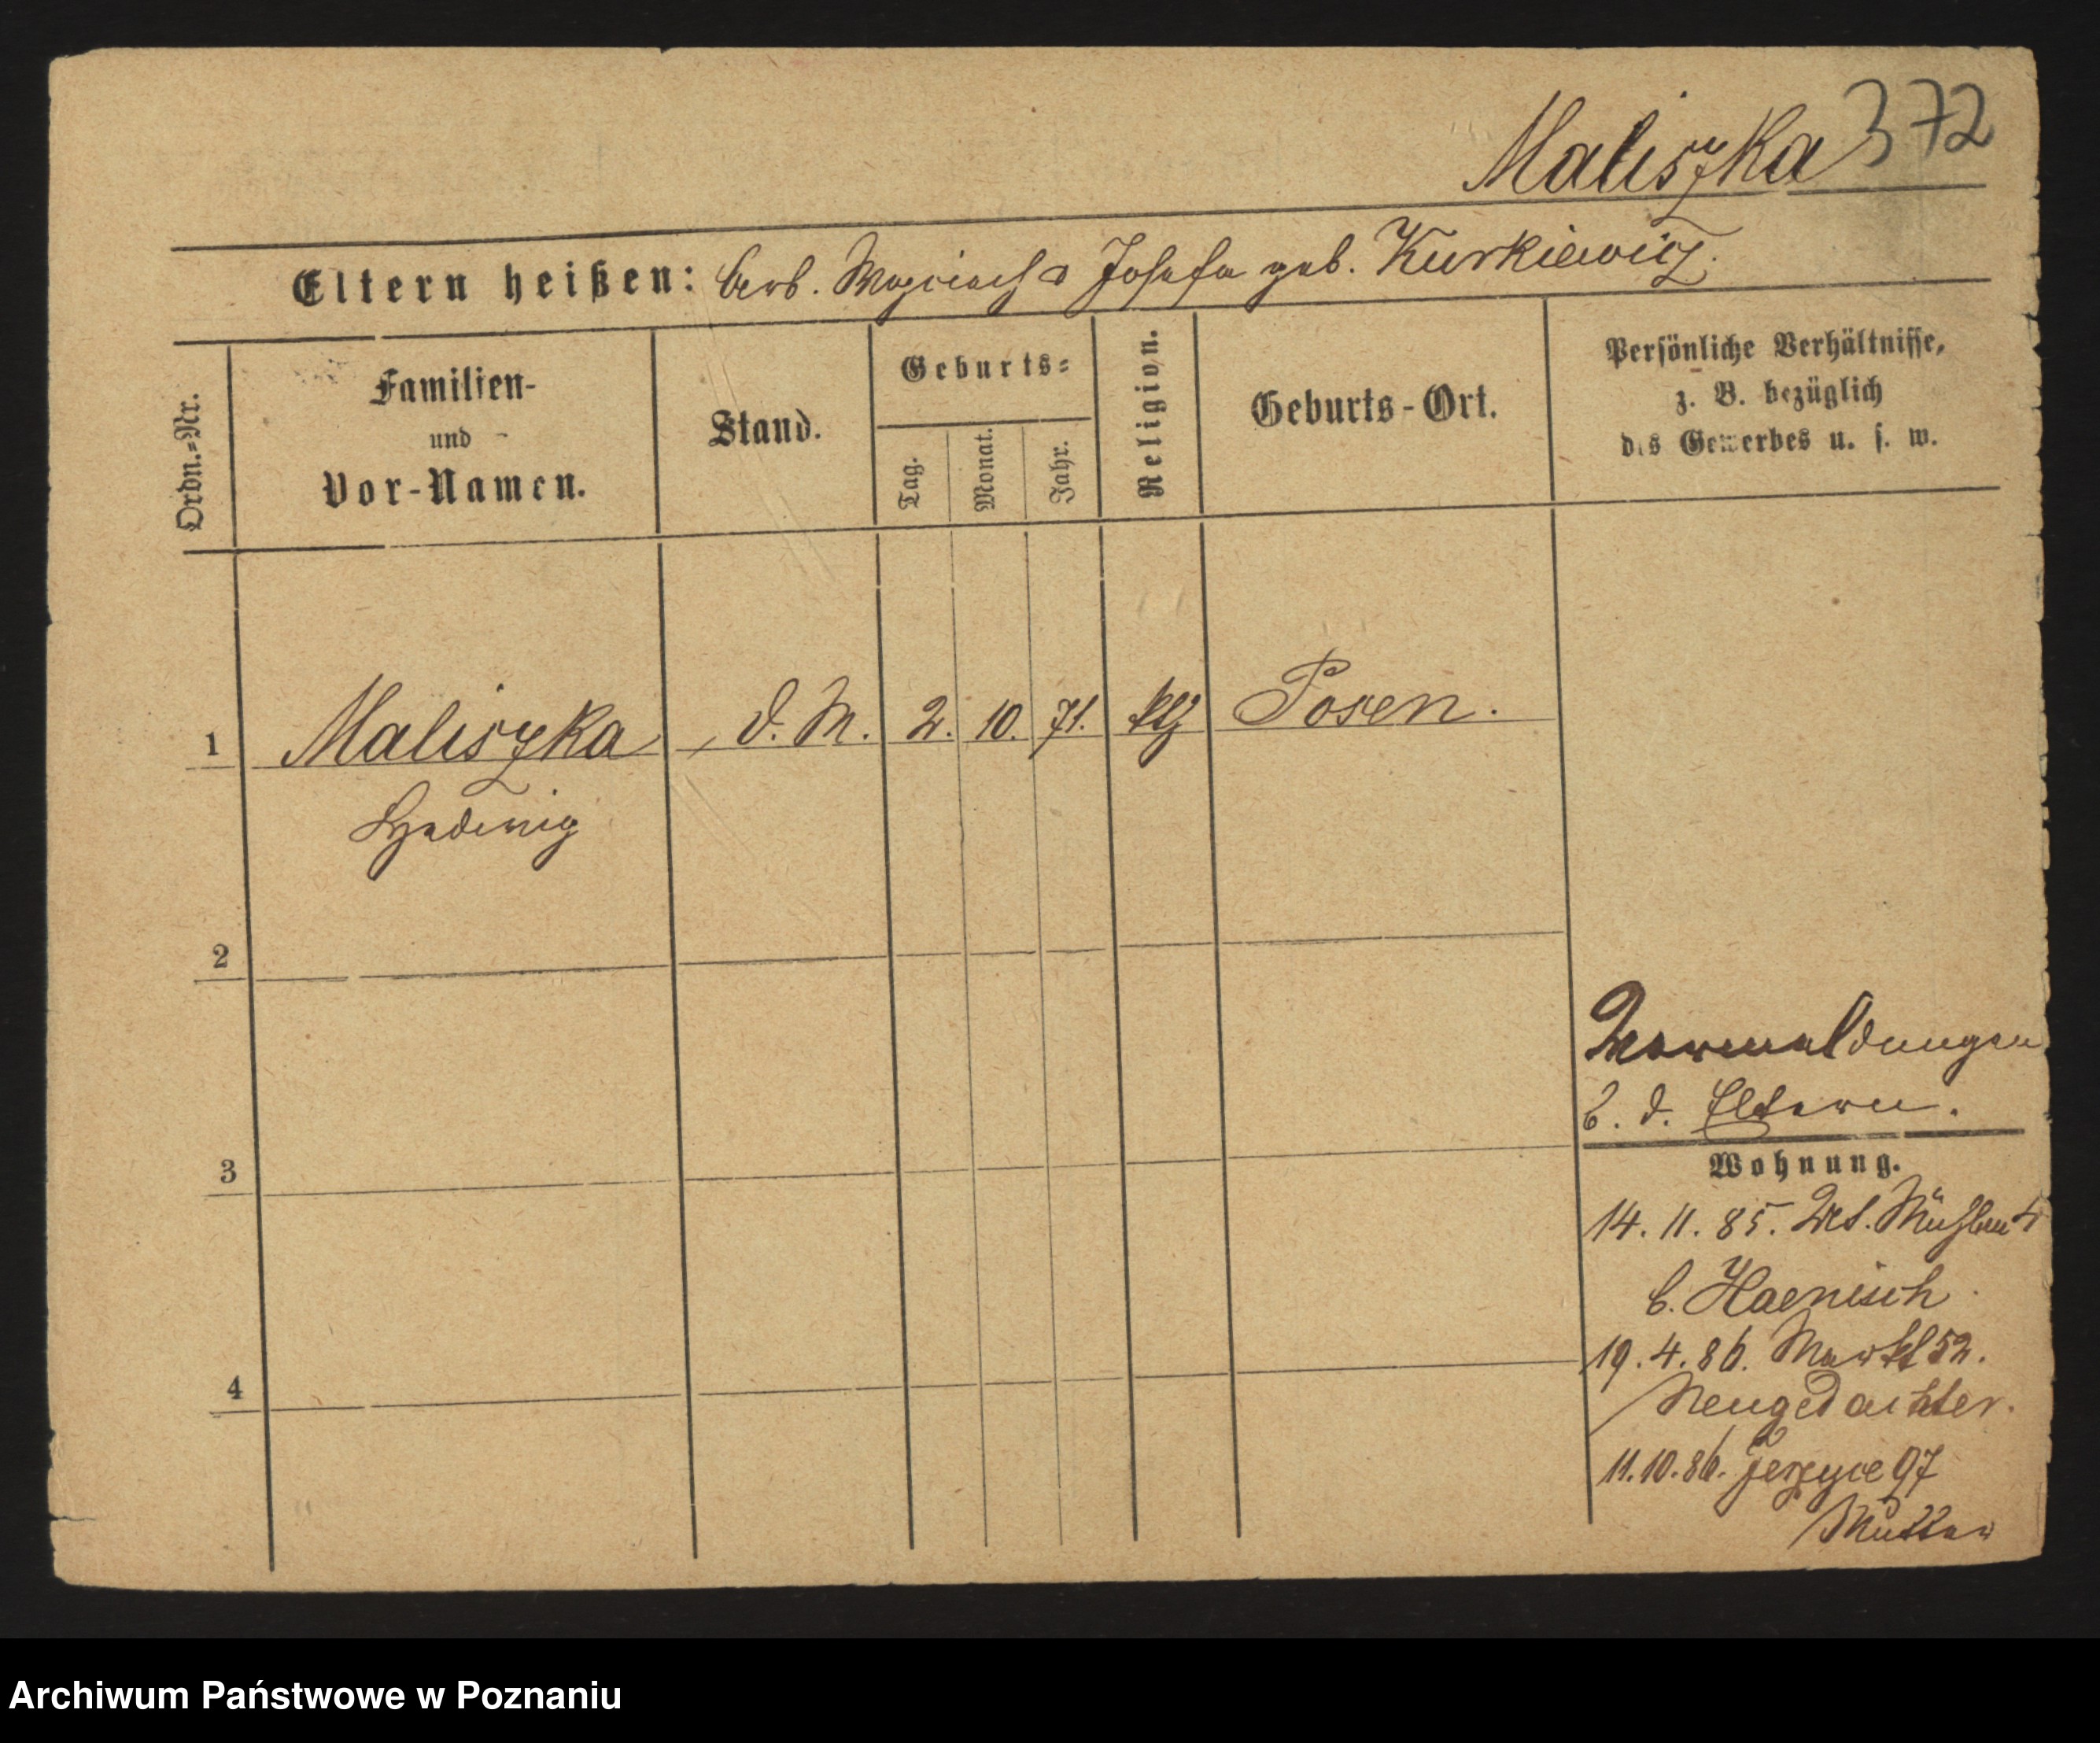 Maliszka 372
Eltern heißen: Arb. Wojciech & Josefa geb. Kurkiewicz.
Ordn.=Nr.
Familien-
und
Vor-Namen.
Stand.
Geburts=
Tag.
Monat.
Jahr.
Religion.
Geburts-Ort.
Persönliche Verhältnisse,
z. B. bezüglich
des Gewerbes u. s. w.
1 Maliszka, d. M. 2. 10. 71. kth Posen.
Hedwig
2
3
4
Vormeldungen
b. d. Eltern.
Wohnung.
14. 11. 85. Mühlen
b. Haenisch.
19. 4. 86. Markt 52.
Neugedachter.
11. 10. 86. Jerzyce 97
Mutter
Archiwum Państwowe w Poznaniu